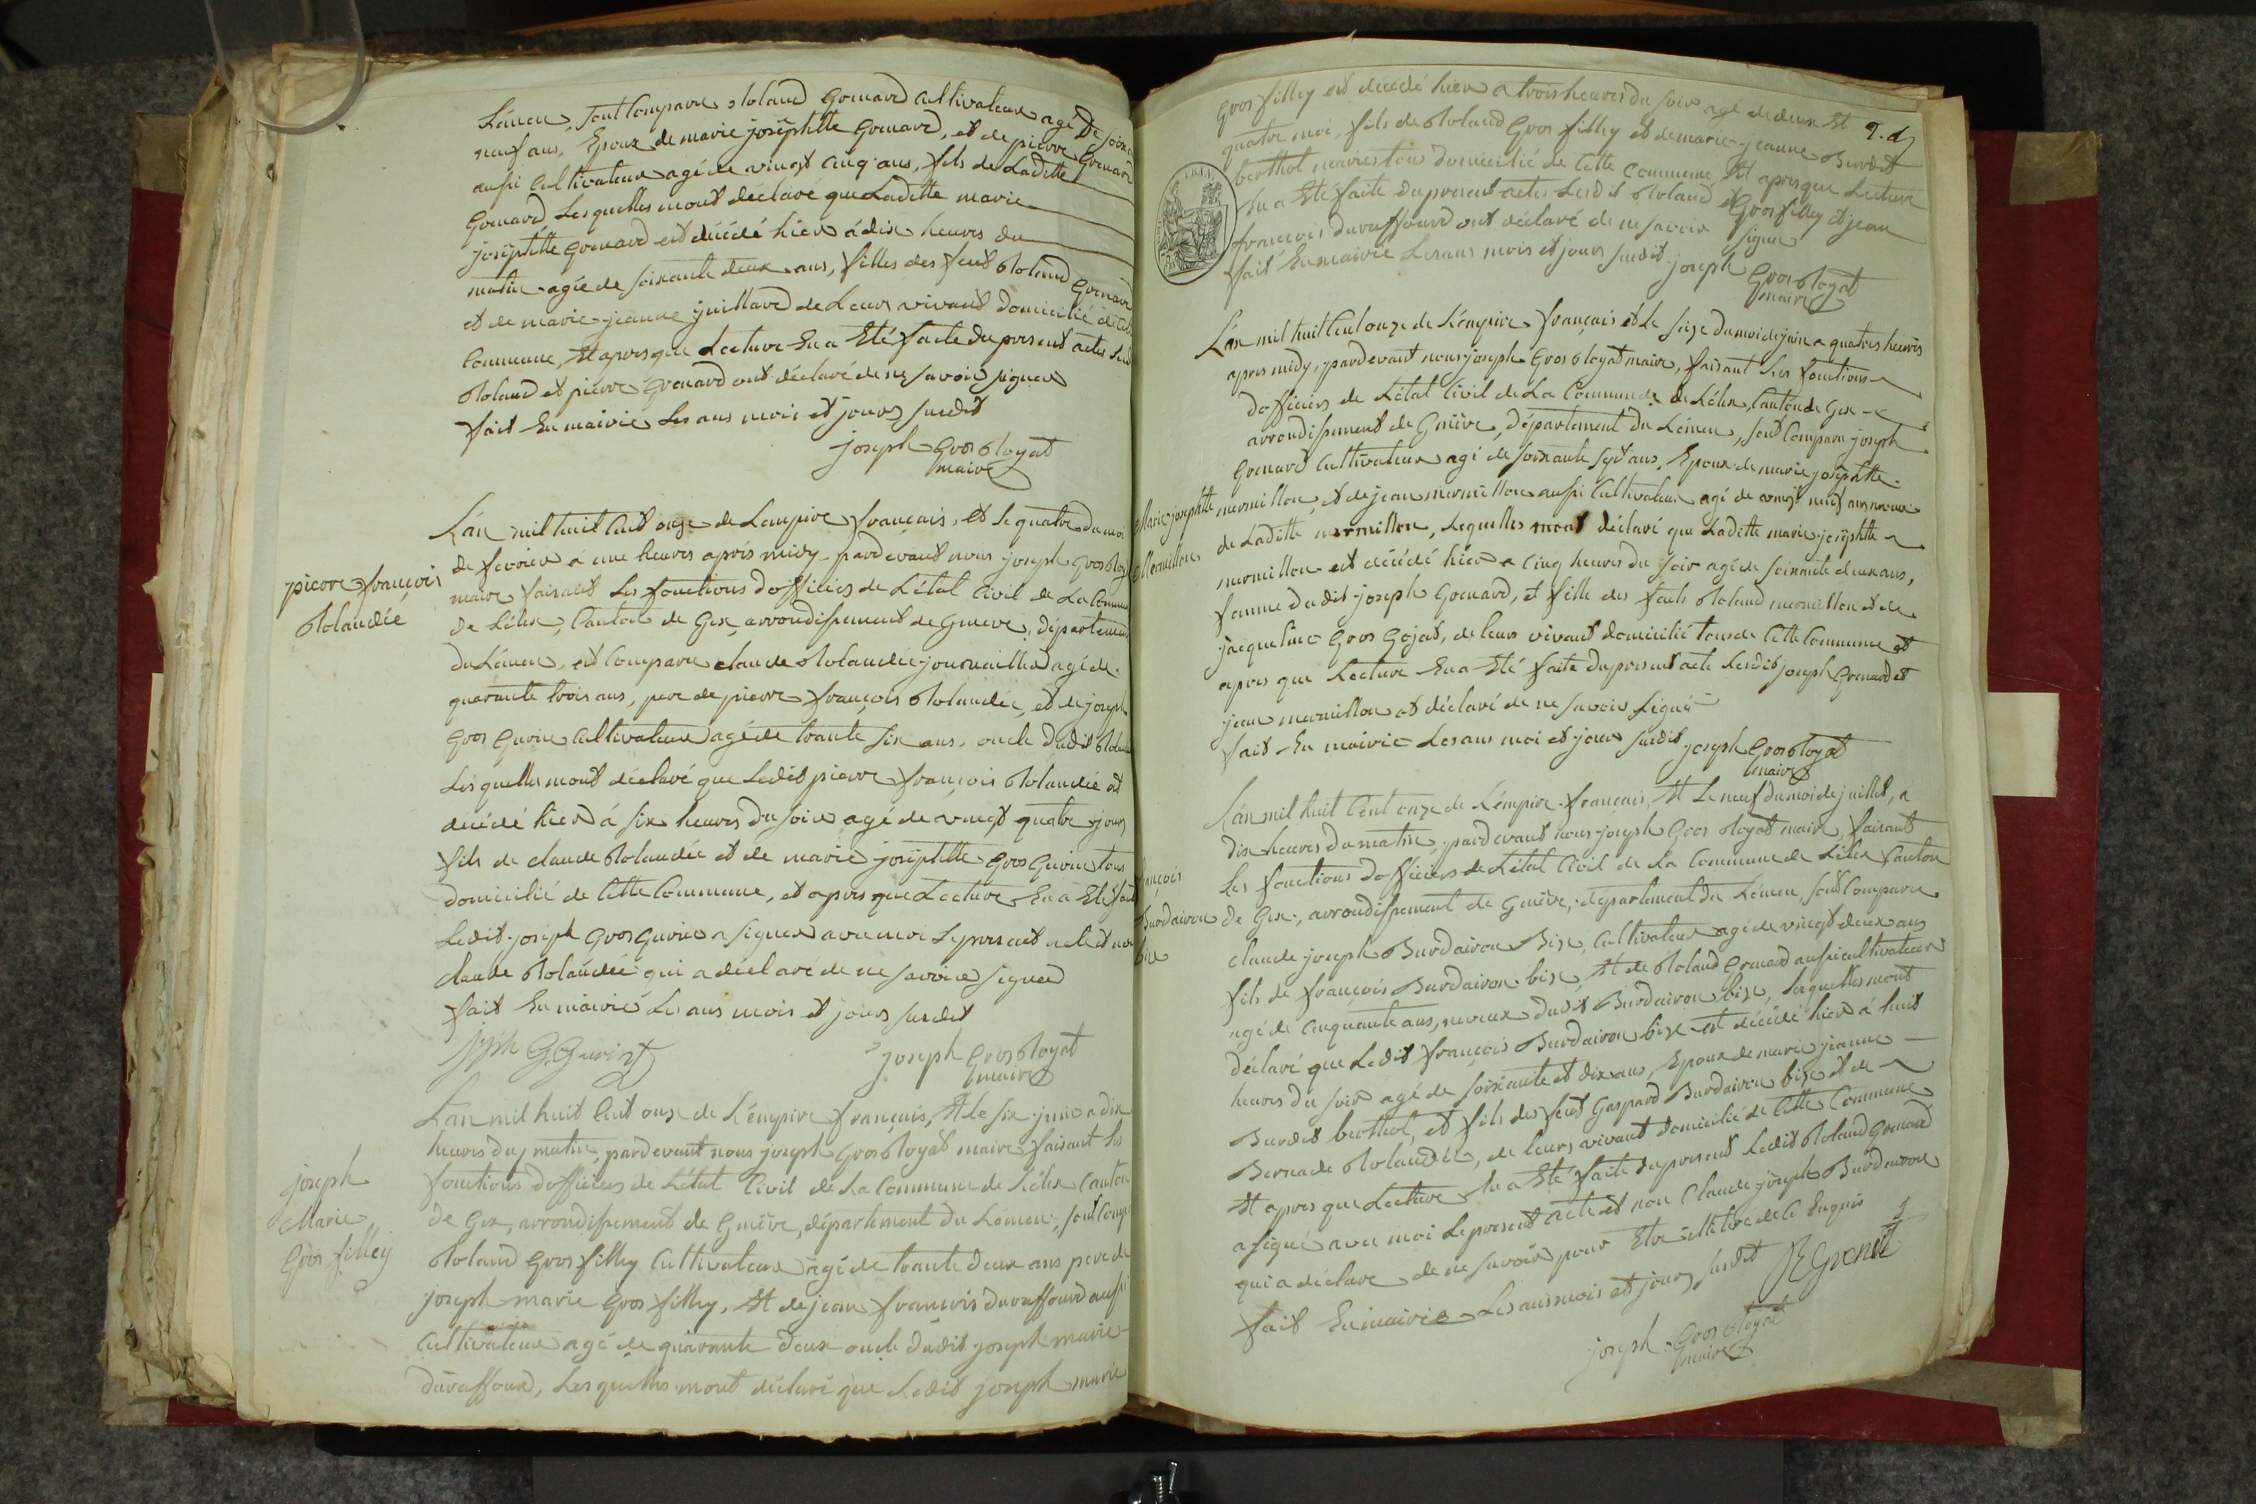 Léman, sont Comparu Roland Grenard Cultivateur agé De soixante
neuf ans, Epoux de marie joséphtte Grenard, et de pierre Grenard
aussi Cultivateur agé de vingt Cinq ans, fils de Laditte
Grenard, Lesquelles mont déclaré que Laditte marie
joséphtte Grenard est décédé hier à dix heures du
matin agée de soixante deux ans, filles des feut Roland Grenard
et de marie jeanne juillard de Leurs vivant domicilié de Cette
Commune, Et apres que Lecture En a Eté faite du present actes Led
Roland et pierre Grenard ont déclaré de ne savoir signer
fait En mairie Les ans mois et jours susdit
joseph Grosroyat
maire
pierre françois
Rolandée
L'an mil huit Cent onze de L'empire français, et Le quatre du moi
de fevrier à une heures aprés midy pardevant nous joseph Grosroy
maire faisant Les fonctions d'officier de L'état Civil de La Commune
De Lélex, Canton de Gex, arrondissement de Geneve, département
du Léman, est Comparu claude Rolandée journaillier agé de
quarante trois ans, pere de pierre françois Rolandée, et de joseph
Gros Gurin Cultivateur agé de trante six ans, oncle dudit Rolan
Lesquelles mont déclaré que Ledit pierre françois Rolandée est
décédé hier à six heures du soir agé de vingt quatre jours
fils de claude Rolandée et de marie joséphtte Gros Gurin tous
domicilié de Cette Commune, et apres que Lecture En a Eté fait
Ledit joseph Gros Gurin a signer avec moi Le present acte et non
claude Rolandée qui a déclaré de ne savoir signer
fait En mairie Les ans mois et jours susdit
jsph G. Gurint
joseph Grosroyat
maire
joseph
Marie
Gros filley
L'an mil huit Cent onze de L'émpire français, Et Le six juin a dix
heures du matin, pardevant nous joseph Grosroyat maire faisant Les
fonctions d'officier de L'état Civil de La Commune de Lélex Canton
de Gex, arrondissement de Genève, département du Léman, sont Comp
Roland Gros filley Cultivateur agé de trante deux ans pere de
joseph marie Gros filley, Et de jean françois Duraffourd aussi
Cultivateur agé de quarante deux oncle dudit joseph marie
duraffour, Lesquelles mont déclaré que Ledit joseph marie
2. d
Gros filley est décédé hier a trois heures du soir agé de deux Et
quatre moi, fils de Roland Gros filley et de marie jeanne Burdet
berthot mairie tous domicilié de Cette Commune, Et apres que Lecture
En a Eté faite du present actes Lesdit Roland Gros filley et jean
françois duraffourd ont déclaré de ne savoir signer
fait En mairie Les ans mois et jours susdit joseph Grosroyat
maire
L'an mil huit Cent onze de L'émpire français et Le seize du moi de juin a quatres heures
apres midy, pardevant nous joseph Grosroyat maire, faisant Les fonctions
d'officiers de L'état Civil de La Commune de Lélex, Canton de Gex
arrondissement de Genève, département du Léman, sont Comparu joseph
Grenard Cultivateur agé de soixante sept ans, Epoux de marie joséphtte
Marie josephtte
Mermillon
mermillon, et de jean mermillon aussi Cultivateur agé de vingt neuf ans neveux
de Laditte mermillon, Lequelles mont déclaré que Laditte marie joséphtte
mermillon est décédé hier a Cinq heures du soir agé de soixante deux ans,
famme dudit joseph Grenard, et fille des feuts Roland mermillon et de
jaqueline Gros Gojat, de leurs vivant domicilié tous de Cette Commune et
apres que Lecture En a Eté faite du present acte Lesdit joseph Grenard et
jean mermillon ont déclaré de ne savoir signé
fait En mairie Les ans moi et jour susdit joseph Grosroyat
maire
L'an mil huit Cent onze de L'émpire français, Et Le neuf du moi de juillet, a
dix heures du matin, pardevant nous joseph Gros royat maire, faisant
Les fonctions d'officiers de L'état Civil de La Commune de Lélex Canton
françois
Burdairon
bise
de Gex, arrondissement de Genève, département du Léman, sont Comparu
claude joseph Burdairon Bise, Cultivateur agé de vingt deux ans
fils de françois Burdairon bise, Et de Roland Grenard aussi cultivateur
agé de Cinquante ans, neveux dudit Burdairon bise, Lesquelles mont
déclaré que Ledit françois Burdairon bise est décédé hier à huit
heures du soir agé de soixante et dix ans, Epoux de marie jeanne
Burdet berthot, et fils des feut Gaspard Burdairon bise et de
Bernade Rolandée, de leurs vivant domicilié de Cette Commune
Et apres que Lecture En a Eté faite du present Ledit Roland Grenard
a signé avec moi Le present acte et non Claude joseph Burdairon
qui a déclaré de ne savoir pour Etre illitére de Ce Enquis
fait En mairie Les ans mois et jours susdit
joseph Grosroyat
maire